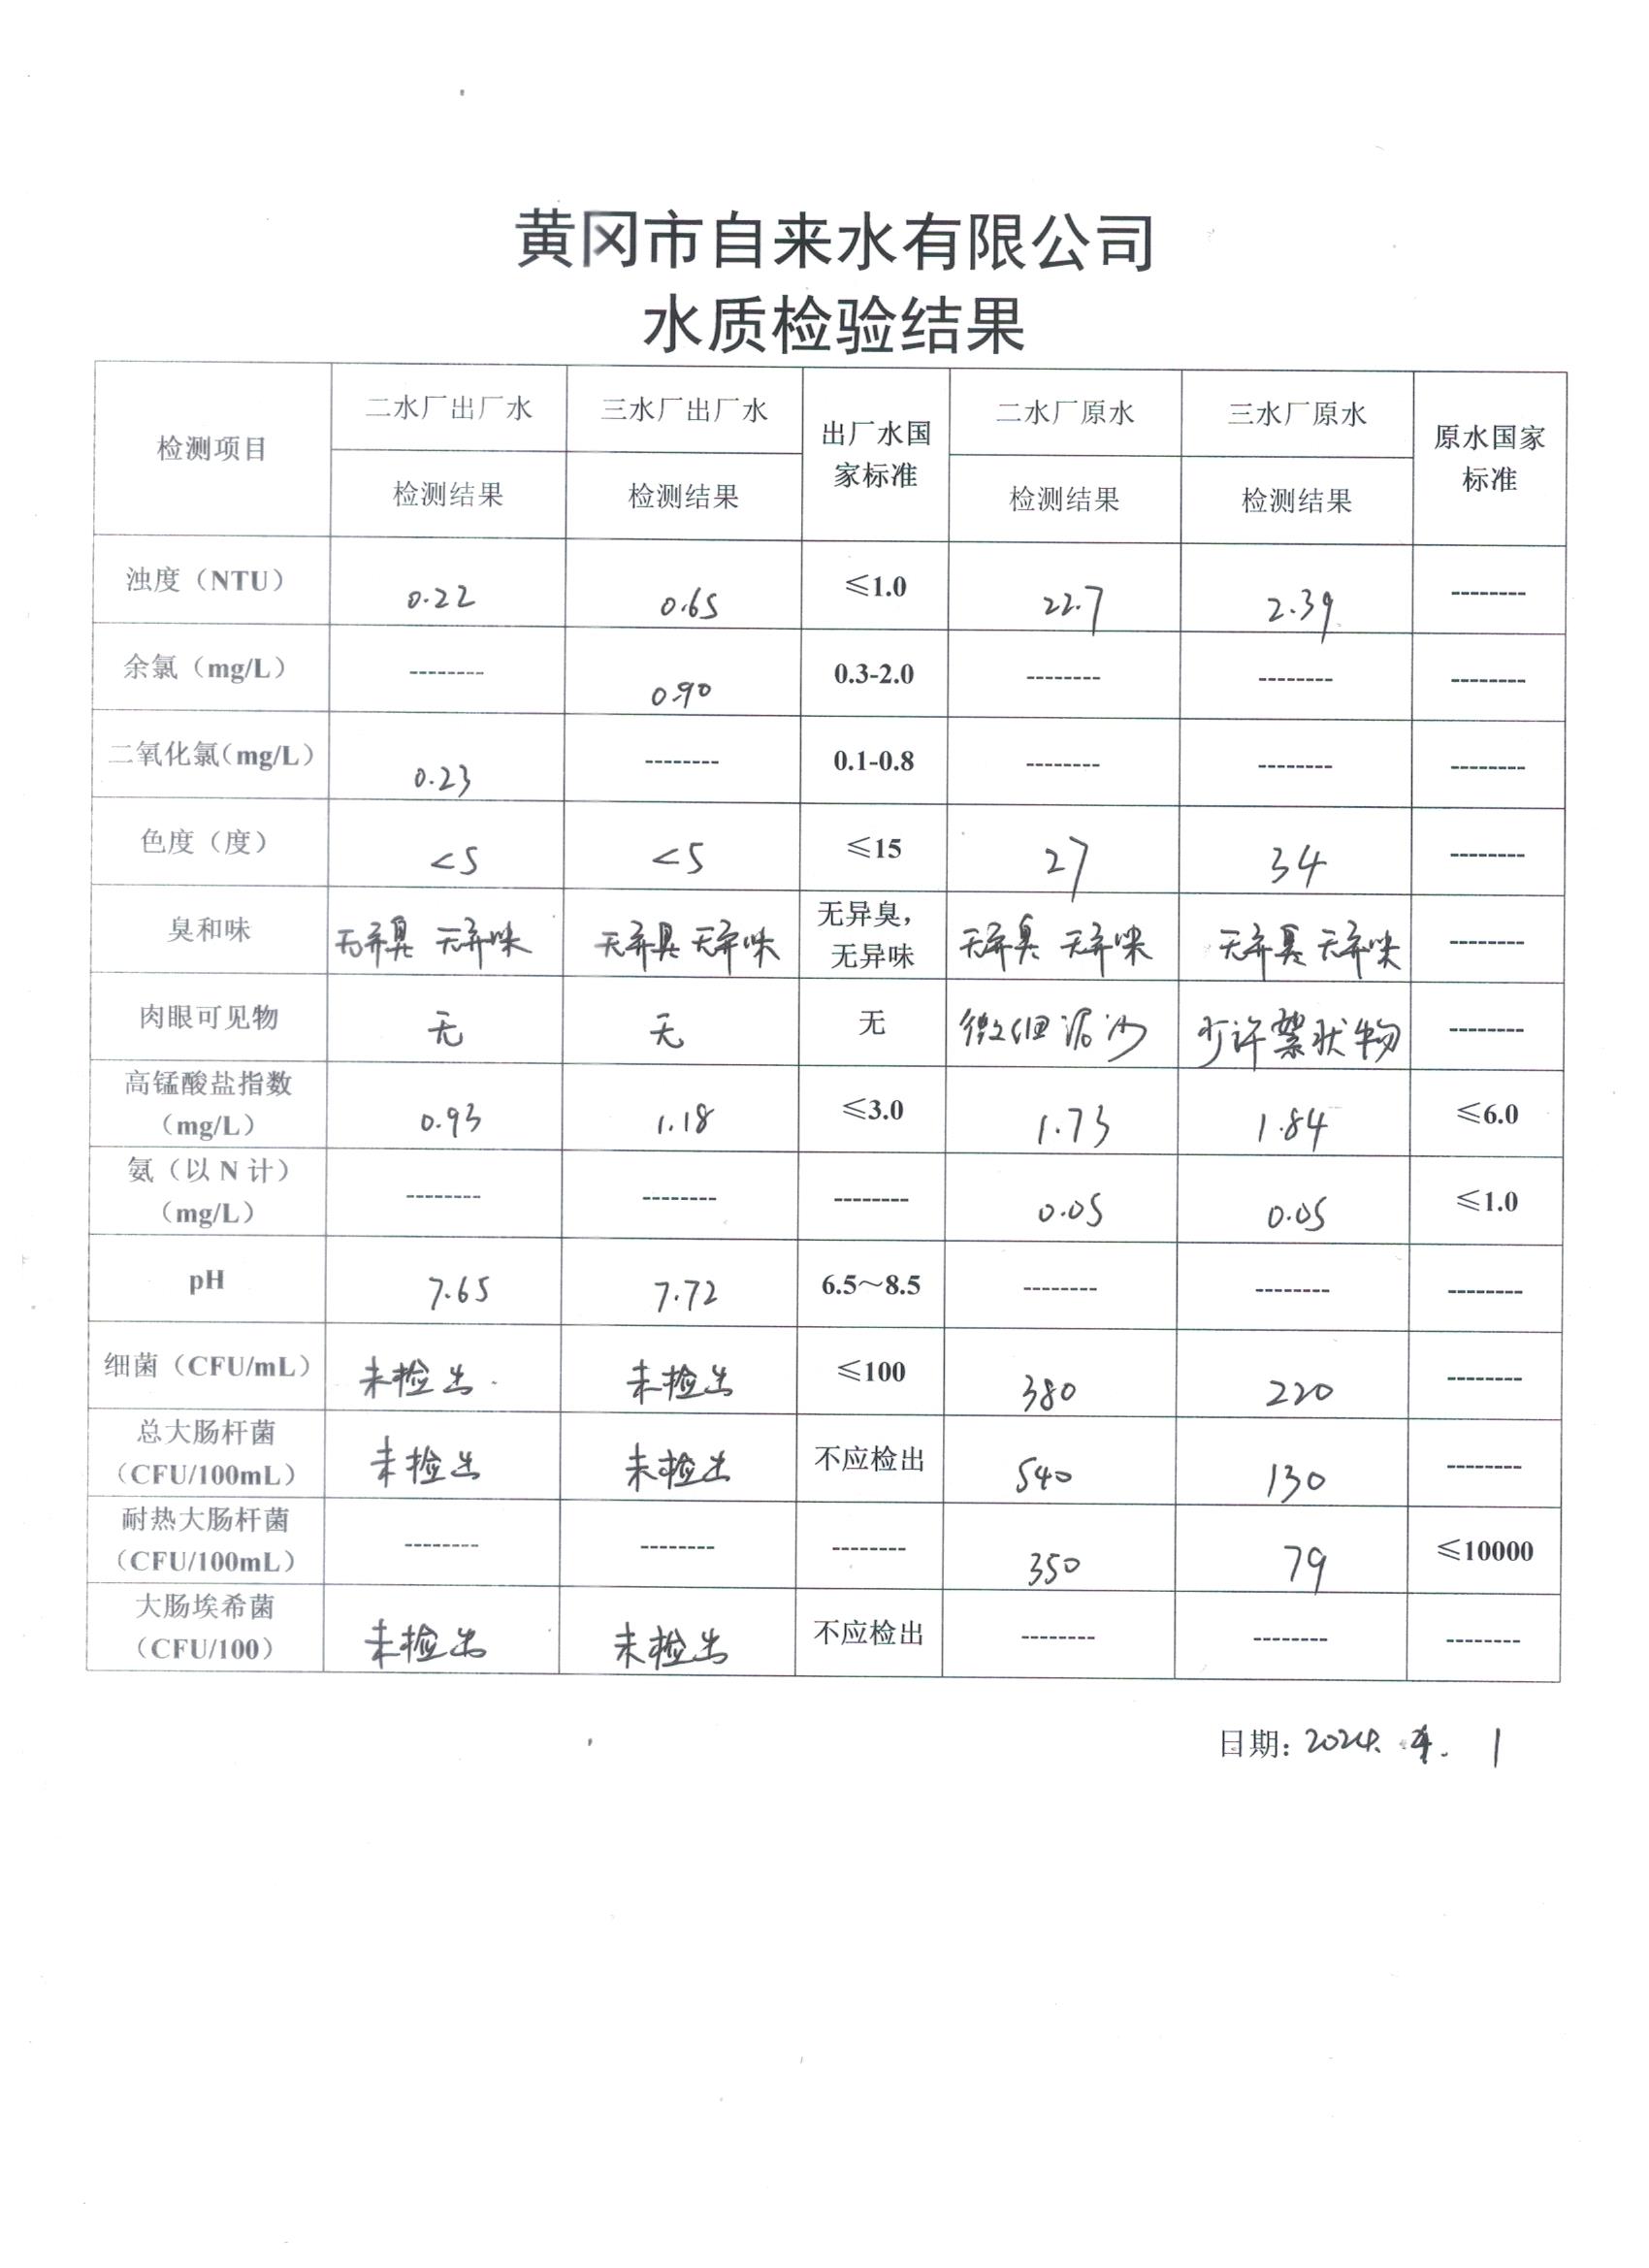 黄冈市自来水有限公司
水质检验结果
检测项目 二水厂出厂水 三水厂出厂水 出厂水国家标准 二水厂原水 三水厂原水 原水国家标准
检测结果 检测结果 检测结果 检测结果
浊度（NTU） 0.22 0.65 ≤1.0 22.7 2.39 --------
余氯（mg/L） -------- 0.90 0.3-2.0 -------- -------- --------
二氧化氯（mg/L） 0.23 -------- 0.1-0.8 -------- -------- --------
色度（度） <5 <5 ≤15 27 34 --------
臭和味 无异臭 无异味 无异臭 无异味 无异臭，无异味 无异臭 无异味 无异臭 无异味 --------
肉眼可见物 无 无 无 微细泥沙 少许絮状物 --------
高锰酸盐指数（mg/L） 0.93 1.18 ≤3.0 1.73 1.84 ≤6.0
氨（以 N 计）（mg/L） -------- -------- -------- 0.05 0.05 ≤1.0
pH 7.65 7.72 6.5～8.5 -------- -------- --------
细菌（CFU/mL） 未检出 未检出 ≤100 380 220 --------
总大肠杆菌（CFU/100mL） 未检出 未检出 不应检出 540 130 --------
耐热大肠杆菌（CFU/100mL） -------- -------- -------- 350 79 ≤10000
大肠埃希菌（CFU/100） 未检出 未检出 不应检出 -------- -------- --------
日期: 2024. 4. 1